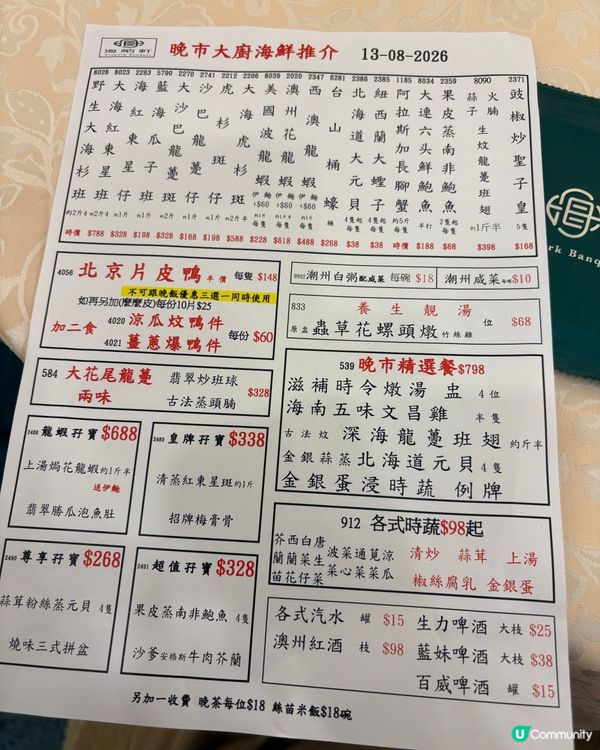 海皇軒
晚市大廚海鮮推介 13-08-2026
8028 8023 2263 5790 2270 2741 2212 2206 8039 2020 2345 6281 2386 2385 1185 8034 2359 8090 2371
野生大海杉斑 約2斤4 時價
大紅東星斑 約2斤4 $788
海紅瓜子斑 約1斤 $328
藍瓜子斑 約1斤 $198
大沙巴龍躉 約1斤 $168
沙巴龍躉仔 約1斤 $168
虎杉斑仔 約1斤 $198
大海虎斑 約2斤半 $588
美國龍蝦 伊麵+$60 $228
澳洲龍蝦 伊麵+$60 $618
西澳龍蝦 伊麵+$60 $488
台山桶蠔 桶 $268
北海道大元貝 4隻起 每隻 $38
紐西蘭大元蟶子 4隻起 每隻 $38
阿拉斯加長腳蟹 約5斤 每隻 時價
大連六头鮮鮑魚 半打 $188
果皮蒸南非鮑魚 2隻起 每隻 $68
蒜子火腩生炆龍躉斑翅 約1斤半 $398
豉椒炒聖子皇 5隻 $168
4056 北京片皮鴨 半價 每隻 $148
不可跟晚飯優惠三選一同時使用
如再另加(麼麼皮)每份10片$25
加二食 4020 涼瓜炆鴨件
4021 薑蔥爆鴨件 每份 $60
9902 潮州白粥 配咸菜 每碗 $18
潮州咸菜 每碟 $10
833 養生靚湯
原盅 蟲草花螺頭燉竹絲雞 位 $68
584 大花尾龍躉 翡翠炒班球
兩味 古法蒸头腩 $328
539 晚市精選餐$798
滋補時令燉湯 盅 4位
海南五味文昌雞 半隻
古法炆 深海龍躉班翅 約斤半
金銀蒜蒸 北海道元貝 4隻
金銀蛋浸時蔬 例牌
2488 龍蝦孖寶 $688
上湯焗花龍蝦 約1斤半
送伊麵
翡翠勝瓜泡魚肚
2489 皇牌孖寶 $338
清蒸紅東星斑 約1斤
招牌梅膏骨
2490 尊享孖寶 $268
蒜茸粉絲蒸元貝 4隻
燒味三式拼盆
2491 超值孖寶 $328
果皮蒸南非鮑魚 4隻
沙爹安格斯牛肉芥蘭
912 各式時蔬$98起
芥蘭苗 西蘭花 白菜仔 唐生菜 菠菜 通菜 莧菜 涼瓜
清炒 蒜茸 上湯
椒絲腐乳 金銀蛋
各式汽水 罐 $15
澳州紅酒 枝 $98
生力啤酒 大枝 $25
藍妹啤酒 大枝 $38
百威啤酒 罐 $15
另加一收費 晚茶每位$18 絲苗米飯$18碗
rk Banqu
U Community